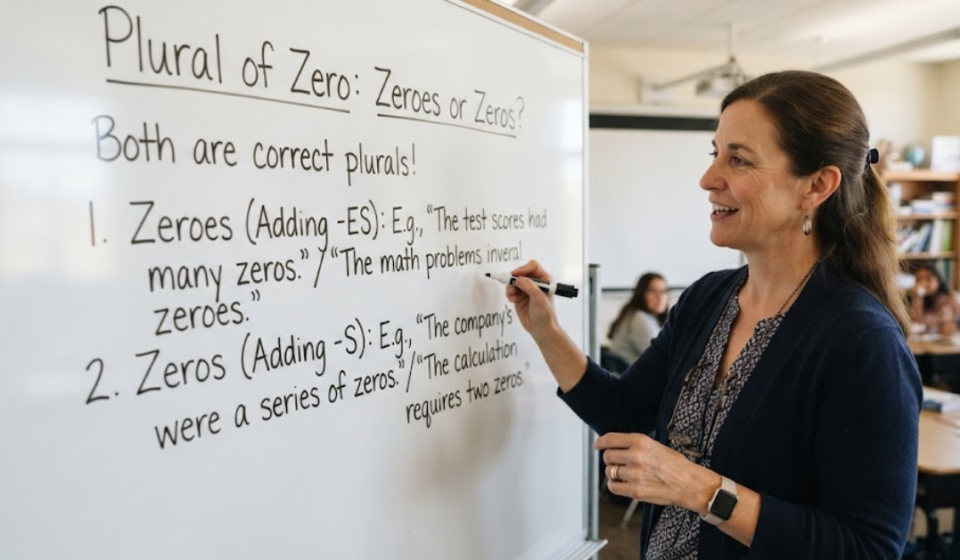 Plural of Zero: Zeroes or Zeros?
Both are correct plurals!
1. Zeroes (Adding -ES): E.g., “The test scores had
many zeros.” / “The math problems inveral
zeroes.”
2. Zeros (Adding -S): E.g., “The company's
were a series of zeros.” / “The calculation
requires two zeros.”